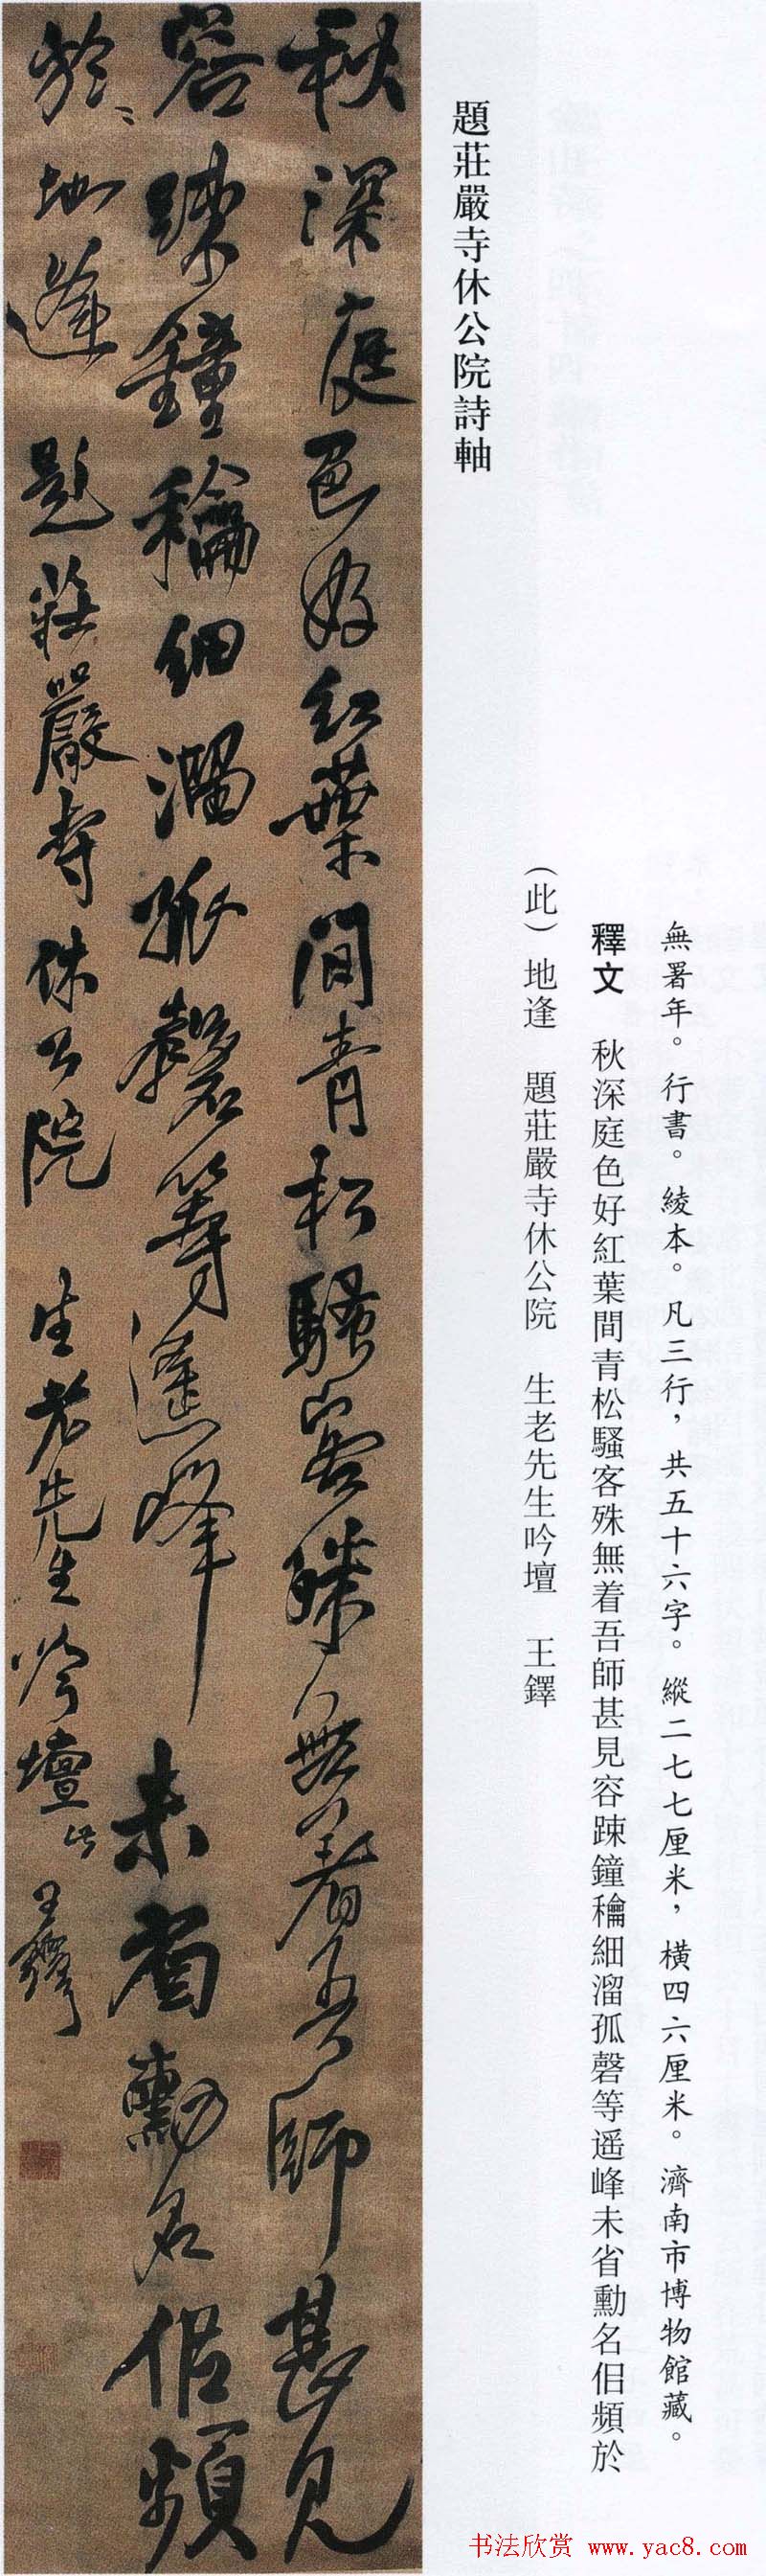 秋深庭色好紅葉間青松騷客殊無着吾師甚見
容踈鐘穐細溜孤磬等遥峰未省勳名侣頻
於此地逢 題莊嚴寺休公院 生老先生吟壇 王鐸
題莊嚴寺休公院詩軸
無署年。行書。綾本。凡三行，共五十六字。縱二七七厘米，橫四六厘米。濟南市博物館藏。
釋文 秋深庭色好紅葉間青松騷客殊無着吾師甚見容踈鐘穐細溜孤磬等遥峰未省勳名侣頻於
（此）地逢 題莊嚴寺休公院 生老先生吟壇 王鐸
书法欣赏 www.yac8.com